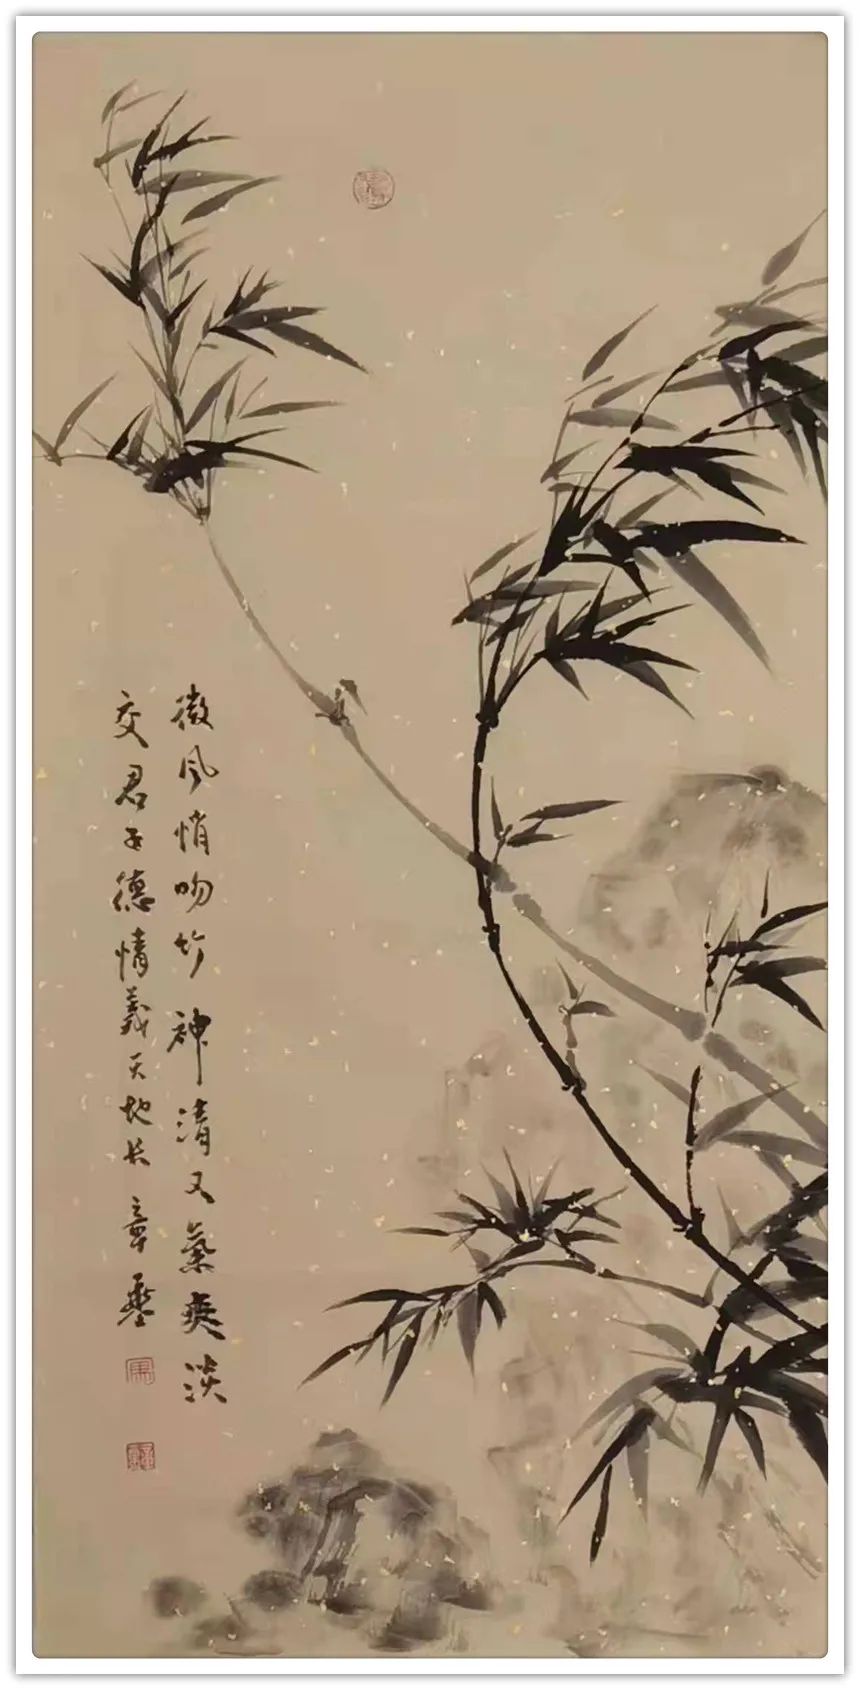 微风悄吻竹神清又氣爽淡
交君子德情義天地长章墨